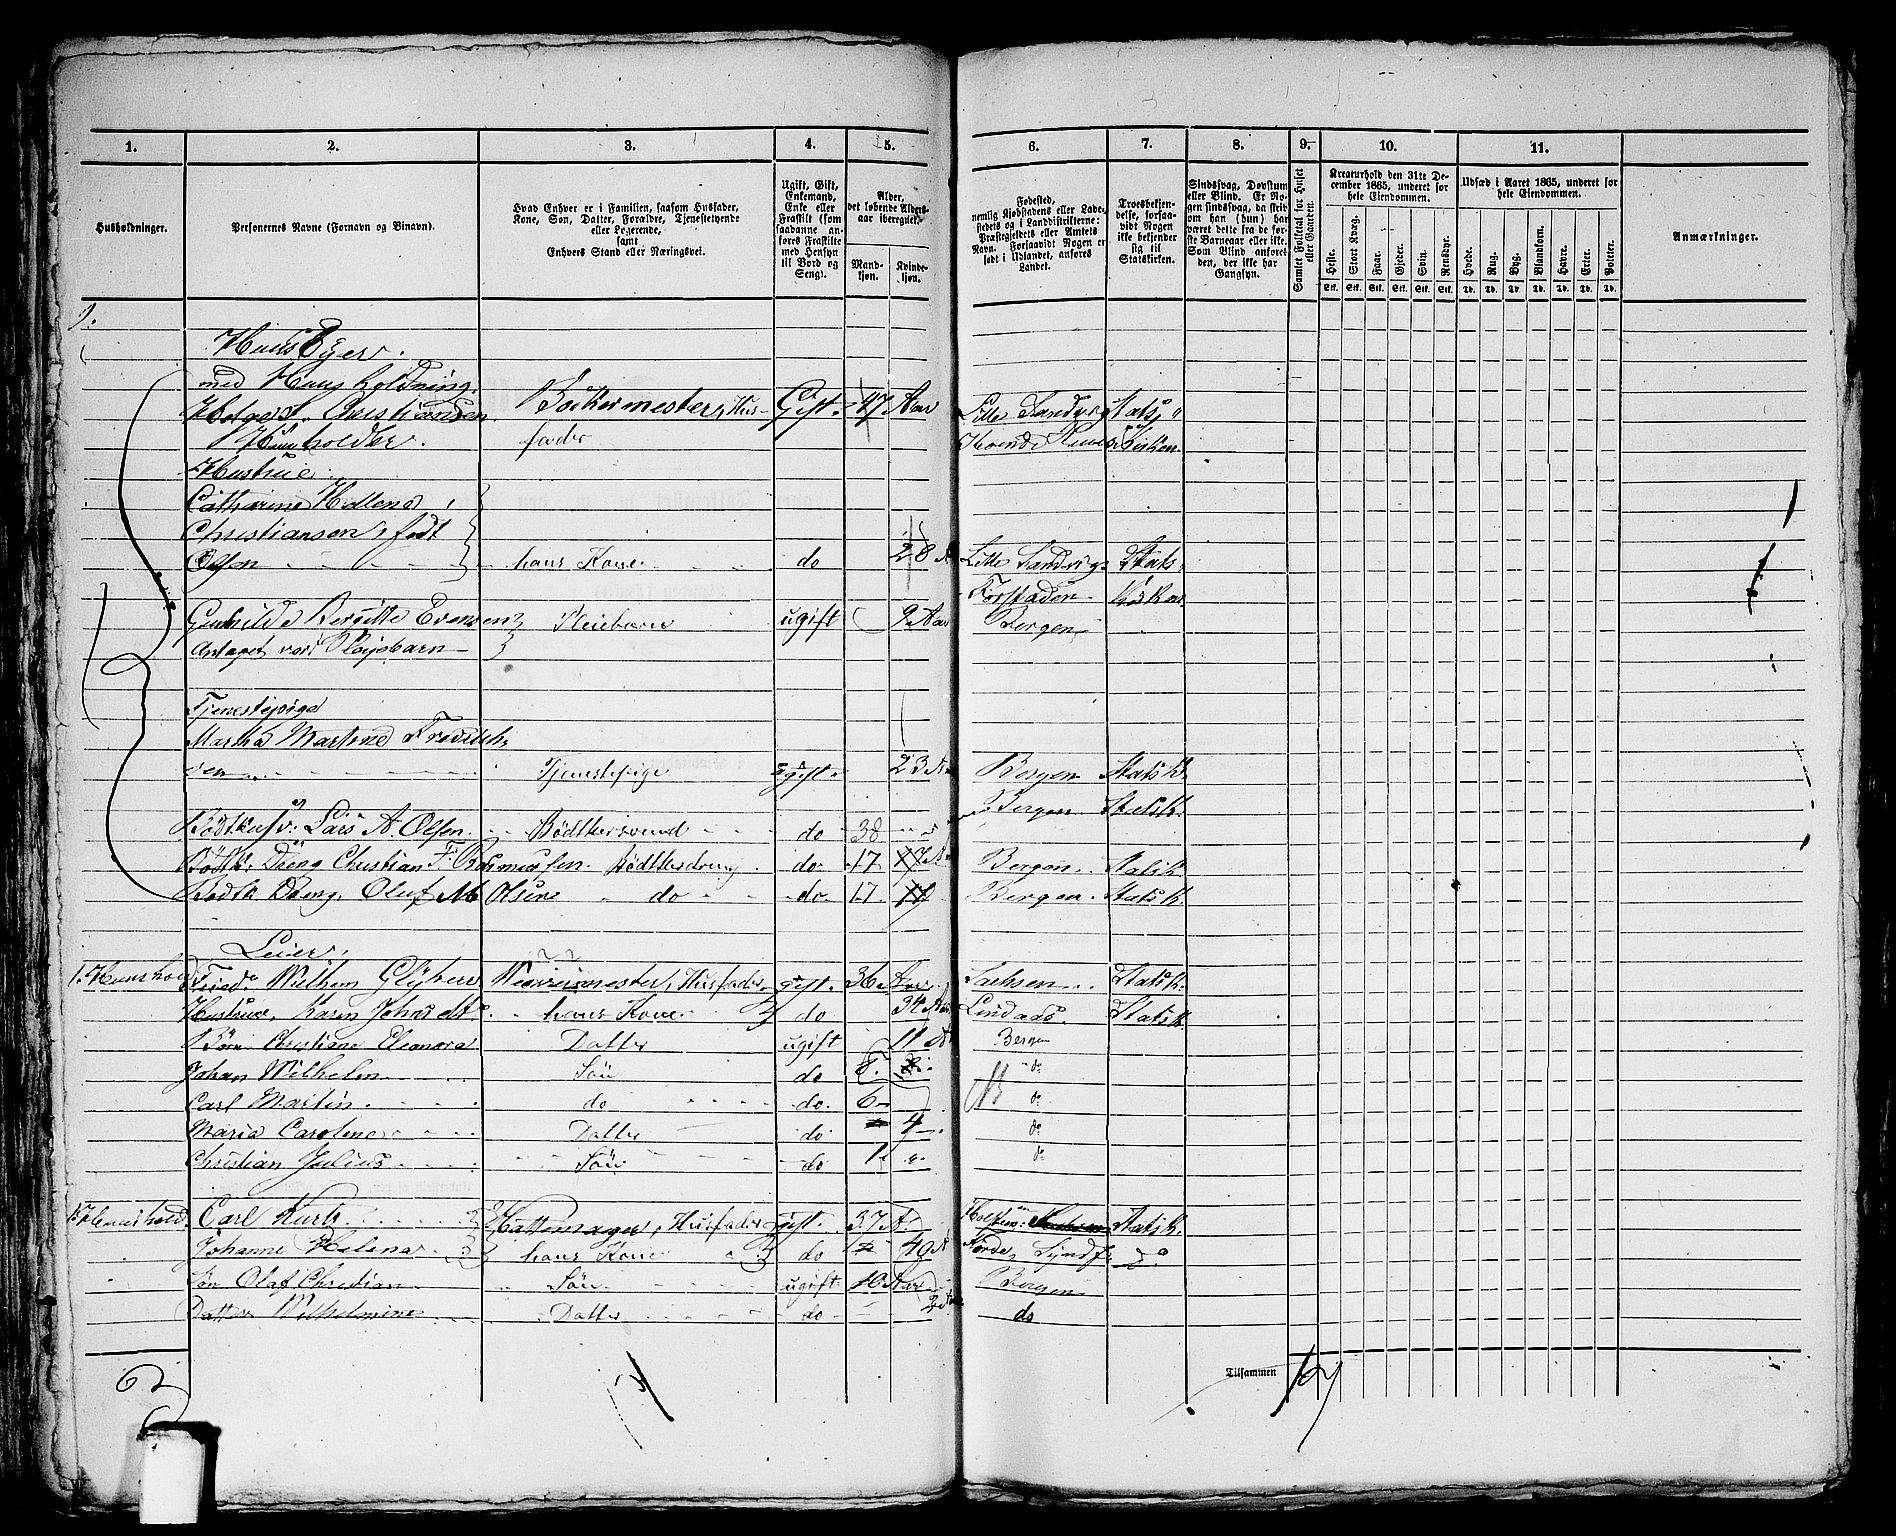 1. 2. 3. 4. 5. 6. 7. 8. 9. 10. 11.
Husholdninger.
Personernes Navne (Fornavn og Binavn).
Hvad Enhver er i Familien, saasom Husfader,
Kone, Søn, Datter, Forældre, Tjenestetyende
eller Logerende,
samt
Enhvers Stand eller Næringsvei.
Ugift, Gift,
Enkemand,
Enke eller
Fraskilt (som
saadanne an-
føres Fraskilte
med Hensyn
til Bord og
Seng).
Alder,
det løbende Alders-
aar iberegnet.
Mand-
kjøn.
Kvinde-
kjøn.
Fødested,
nemlig Kjøbstadens eller Lade-
stedets og i Landdistrikterne:
Præstegjeldets eller Amtets
Navn. Forsaavidt Nogen er
født i Udlandet, anføres
Landet.
Troesbekjen-
delse, forsaa-
vidt Nogen
ikke bekjender
sig til
Statskirken.
Sindssvag, Døvstum
eller Blind. Er No-
gen sindssvag, da skriv
om han (hun) har
været dette fra de før-
ste Barneaar eller ikke.
Som Blind anføres
den, der ikke har
Gangsyn.
Samlet Folketal for Huset
eller Gaarden.
Kreaturhold den 31te De-
cember 1865, underet for
hele Eiendommen.
Heste. Stort Kvæg. Faar. Gjeder. Svin. Rensdyr.
Stk. Stk. Stk. Stk. Stk. Stk.
Udsæd i Aaret 1865, underet for
hele Eiendommen.
Hvede. Rug. Byg. Blandkorn. Havre. Erter. Poteter.
Td. Td. Td. Td. Td. Td. Td.
Anmærkninger.
Huus Eyer.
med Huusholdning.
Christiansen Bødkermester, Hus- Gift. 47 Aar Lille Sandvig Stats
fader Kirken
Hustrue
Catharine Hellene
Christiansen, født
Olsen hans Kone do 28 A Lille Sandvigs Stats
Forstaden Kirken
Gunhilde Bergitte Evensen Pleiebarn ugift 9 Aar Bergen
Antaget Pleyebarn
Tjenestepige
Martha Martine Fredrich
sen Tjenestepige ugift 23 A Bergen Statsk
Bergen Statsk.
Lars A. Olsen Bødtkersvend do 38
Dreng Christian F. Rasmussen. Bødtkerdreng do 17 Bergen Statsk
Dreng. Oluf M Olsen do do 17 Bergen Statsk
Leier.
1. Huushold Fried. Wilhem Glyber mester, Husfader. gift. 36 Aar Sachsen Statsk.
Hustrue, Karen hans Kone do 34 Aar Lindaas Statsk
Børn Christiane Eleonora Datter ugift 11 A Bergen
Johan Wilhelm Sön do 8 do
Carl Martin do do 6 do
Maria Caroline Datter do 4 do
Christian Julius Sön do 1 do
1 Huushold. Carl Kurtz Hattemager, Husfader gift. 37 A. Holsten Statsk.
Johanne Helena hans Kone do 49 A Førde, Syndf. do
Søn Olaf Christian Sön ugift 10 Aar Bergen
Datter Wilhelmine Datter do 2 do
62
Tilsammen